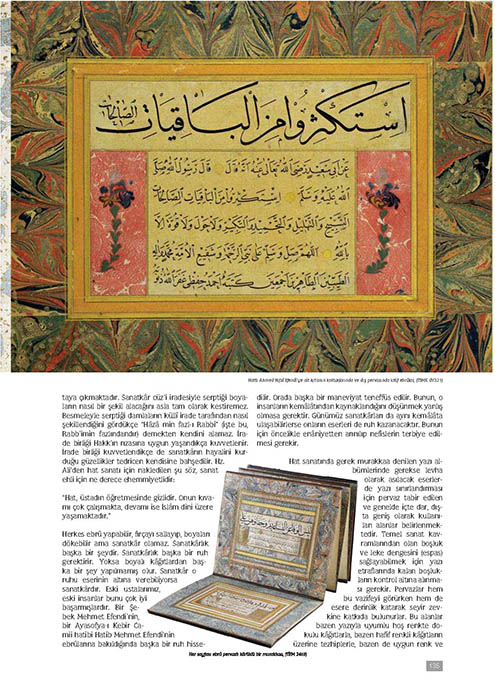 استكثروا من الباقيات الصالحات
عن ابي سعيد رضي الله تعالى عنه انه قال قال رسول الله صلى
الله عليه وسلم استكثروا من الباقيات الصالحات
التسبيح والتهليل والتحميد والتكبير ولا حول ولا قوة الا
بالله اللهم صل وسلم على نبي الرحمة وشفيع الامة محمد واله
الطيبين الطاهرين اجمعين كتبه احمد حفظي غفر الله
Hattı Ahmed Hıfzî Efendi'ye ait kıt'anın koltuklarında ve dış pervazında
taya çıkmaktadır. Sanatkâr cüz'i iradesiyle serptiği boya-
ların nasıl bir şekil alacağını asla tam olarak kestiremez.
Besmeleyle serptiği damlaların küllî irade tarafından nasıl
şekillendiğini gördükçe "Hâzâ min fazl-ı Rabbî" (işte bu,
Rabb'imin fazlındandır) demekten kendini alamaz. İra-
de birliği Hakk'ın rızasına uygun yaşandıkça kuvvetlenir.
İrade birliği kuvvetlendikçe de sanatkârın hayalini kur-
duğu güzellikler tedricen kendisine bahşedilir. Hz.
Ali'den hat sanatı için nakledilen şu söz, sanat
ehli için ne derece ehemmiyetlidir:
"Hat, üstadın öğretmesinde gizlidir. Onun kıva-
mı çok çalışmakta, devamı ise İslâm dini üzere
yaşamaktadır."
Herkes ebrû yapabilir, fırçayı sallayıp, boyaları
dökebilir ama sanatkâr olamaz. Sanatkârlık
başka bir şeydir. Sanatkârlık başka bir ruh
gerektirir. Yoksa boyalı kâğıtlardan baş-
ka bir şey yapılmamış olur. Sanatkâr o
ruhu eserinin altına verebiliyorsa
sanatkârdır. Eski ustalarımız,
eski insanlar bunu çok iyi
başarmışlardır. Bir Şe-
bek Mehmet Efendi'nin,
bir Ayasofya-ı Kebir Ca-
mii hatibi Hatib Mehmet Efendi'nin
ebrûlarına bakıldığında başka bir ruh hisse-
dilir. Orada başka bir maneviyat teneffüs edilir. Bunun, o
insanların kemâlâtından kaynaklandığını düşünmek yanlış
olmasa gerektir. Günümüz sanatkârları da aynı kemâlâta
ulaşabilirlerse onların eserleri de ruh kazanacaktır. Bunun
için öncelikle enâniyetten arınıp nefislerin terbiye edil-
mesi gerekir.
Hat sanatında gerek murakkaa denilen yazı al-
bümlerinde gerekse levha
olarak asılacak eserler-
de yazı sınırlandırması
için pervaz tabir edilen
ve genelde içte dar, dış-
ta geniş olarak kullanı-
lan alanlar belirlenmek-
tedir. Temel sanat kav-
ramlarından olan boşluk
ve leke dengesini (espas)
sağlayabilmek için yazı
etrafında kalan boşluk-
ların kontrol altına alınma-
sı gerekir. Pervazlar hem
bu vazifeyi görürken hem de
esere derinlik katarak seyir zev-
kine katkıda bulunurlar. Bu alanlar
bazen yazıyla uyumlu hoş renkte do-
kulu kâğıtlarla, bazen hafif renkli kâğıtların
üzerine tezhiplerle, bazen de uygun renk ve
Her sayfası ebrû pervazlı körüklü bir murakkaa, (TİEM 2468)
135